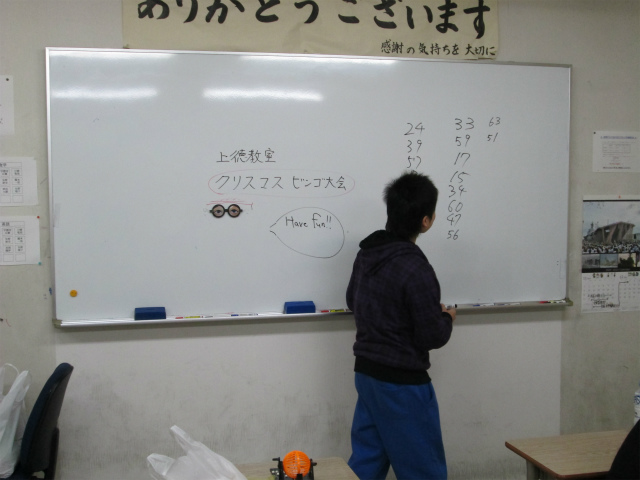 ありがとうございます
感謝の気持ちを大切に
上徳教室
クリスマスビンゴ大会
Have fun!!
24 33 63
39 59 51
57 17
15
34
60
47
56